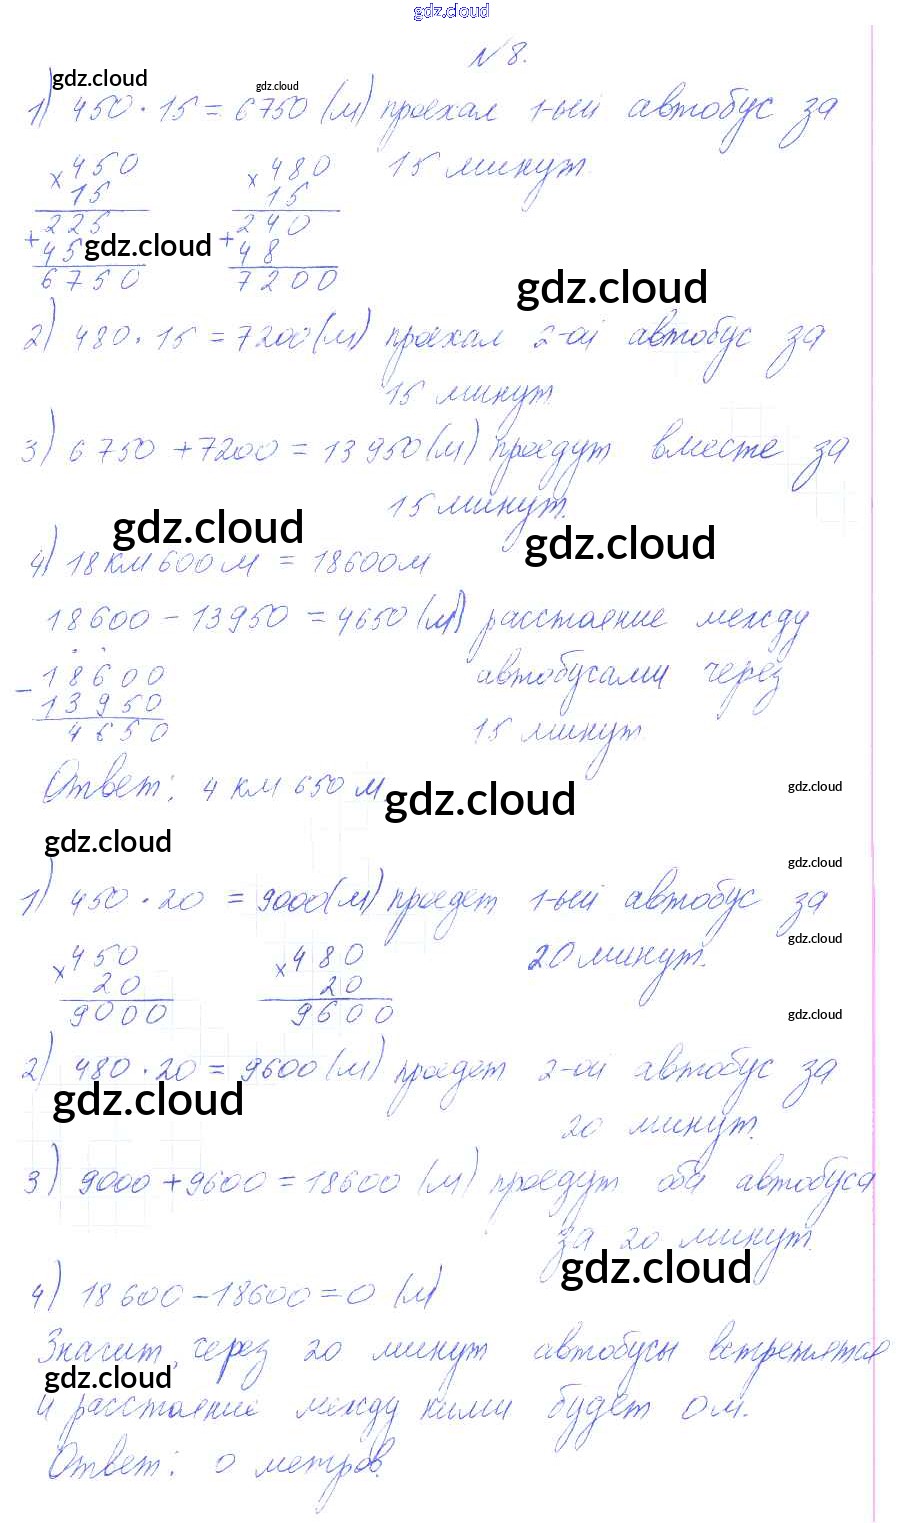 gdz.cloud
N 8.
gdz.cloud gdz.cloud
1) 450 · 15 = 6750 (м) проехал 1-ый автобус за
15 минут.
× 450 × 480
15 15
225 240
+ 45 gdz.cloud + 48
6750 7200
gdz.cloud
2) 480 · 15 = 7200 (м) проехал 2-ой автобус за
15 минут.
3) 6750 + 7200 = 13950 (м) проедут вместе за
15 минут.
gdz.cloud gdz.cloud
4) 18 км 600 м = 18600 м
18600 - 13950 = 4650 (м) расстояние между
автобусами через
15 минут.
- 18600
13950
4650
Ответ: 4 км 650 м.
gdz.cloud gdz.cloud
gdz.cloud
gdz.cloud
1) 450 · 20 = 9000 (м) проедет 1-ый автобус за
20 минут.
gdz.cloud
× 450 × 480
20 20
9000 9600
gdz.cloud
2) 480 · 20 = 9600 (м) проедет 2-ой автобус за
gdz.cloud
20 минут.
3) 9000 + 9600 = 18600 (м) проедут оба автобуса
за 20 минут.
gdz.cloud
4) 18600 - 18600 = 0 (м)
Значит, через 20 минут автобусы встретятся
gdz.cloud
и расстояние между ними будет 0 м.
Ответ: 0 метров.